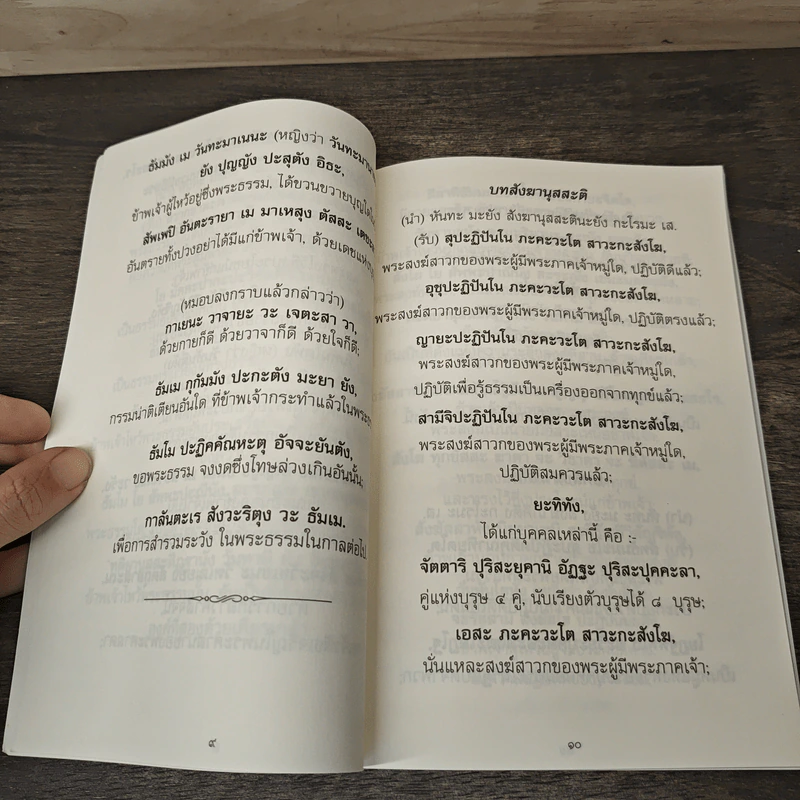 ธัมมัง เม วันทะมาเนนะ (หญิงว่า
ยัง ปุญญัง ปะสุตัง อิธะ,
ข้าพเจ้าผู้ไหว้อยู่ซึ่งพระธรรม, ได้ขวนขวายบุญใด
สัพเพปิ อันตะรายา เม มาเหสุง ตัสสะ
อันตรายทั้งปวงอย่าได้มีแก่ข้าพเจ้า, ด้วยเดช
(หมอบลงกราบแล้วกล่าวว่า)
กาเยนะ วาจายะ วะ เจตะสา วา,
ด้วยกายก็ดี ด้วยวาจาก็ดี ด้วยใจก็ดี;
ธัมเม กุกัมมัง ปะกะตัง มะยา ยัง,
กรรมน่าติเตียนอันใด ที่ข้าพเจ้ากระทำแล้วใน
ธัมโม ปะฏิคคัณหะตุ อัจจะยันตัง,
ขอพระธรรม จงงดซึ่งโทษล่วงเกินอันนั้น;
กาลันตะเร สังวะริตุง วะ ธัมเม.
เพื่อการสำรวมระวัง ในพระธรรมในกาลต่อไป
๙
บทสังฆานุสสะติ
(นำ) หันทะ มะยัง สังฆานุสสะตินะยัง กะโรมะ เส.
(รับ) สุปะฏิปันโน ภะคะวะโต สาวะกะสังโฆ,
พระสงฆ์สาวกของพระผู้มีพระภาคเจ้าหมู่ใด, ปฏิบัติดีแล้ว;
อุชุปะฏิปันโน ภะคะวะโต สาวะกะสังโฆ,
พระสงฆ์สาวกของพระผู้มีพระภาคเจ้าหมู่ใด, ปฏิบัติตรงแล้ว;
ญายะปะฏิปันโน ภะคะวะโต สาวะกะสังโฆ,
พระสงฆ์สาวกของพระผู้มีพระภาคเจ้าหมู่ใด,
ปฏิบัติเพื่อรู้ธรรมเป็นเครื่องออกจากทุกข์แล้ว;
สามีจิปะฏิปันโน ภะคะวะโต สาวะกะสังโฆ,
พระสงฆ์สาวกของพระผู้มีพระภาคเจ้าหมู่ใด,
ปฏิบัติสมควรแล้ว;
ยะทิทัง,
ได้แก่บุคคลเหล่านี้ คือ :-
จัตตาริ ปุริสะยุคานิ อัฏฐะ ปุริสะปุคคะลา,
คู่แห่งบุรุษ ๔ คู่, นับเรียงตัวบุรุษได้ ๘ บุรุษ;
เอสะ ภะคะวะโต สาวะกะสังโฆ,
นั่นแหละสงฆ์สาวกของพระผู้มีพระภาคเจ้า;
๑๐